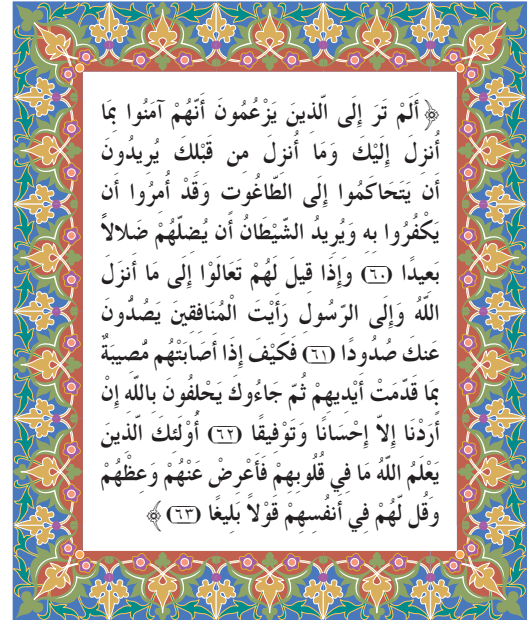 ﴿ أَلَمْ تَرَ إِلَى الّذينَ يَزْعُمُونَ أَنّهُمْ آمَنُوا بِمَا
أُنزلَ إِلَيْكَ وَمَا أُنزل من قَبْلك يُريدُونَ
أَن يَتَحاكَمُوا إِلَى الطّاغُوت وَقَدْ أُمرُوا أَن
يَكْفُرُوا به وَيُريدُ الشّيْطَانُ أَن يُضلّهُمْ ضَلالاً
بَعيدًا (٦٠) وَإِذَا قيلَ لَهُمْ تَعَالَوْا إِلَى مَا أَنزَلَ
اللّهُ وَإِلَى الرّسُول رَأَيْتَ الْمُنَافقينَ يَصُدُّونَ
عَنكَ صُدُودًا (٦١) فَكَيْفَ إِذَا أَصَابَتْهُم مُّصيبَةٌ
بِمَا قَدّمَتْ أَيْديهمْ ثُمّ جاءُوكَ يَحْلفُونَ باللّه إِنْ
أَرَدْنَا إِلاّ إِحْسَانًا وَتَوْفيقًا (٦٢) أُوْلئكَ الّذينَ
يَعْلَمُ اللّهُ مَا في قُلُوبهمْ فَأَعْرضْ عَنْهُمْ وَعظْهُمْ
وَقُل لّهُمْ في أَنفُسهمْ قَوْلاً بَليغًا (٦٣) ﴾